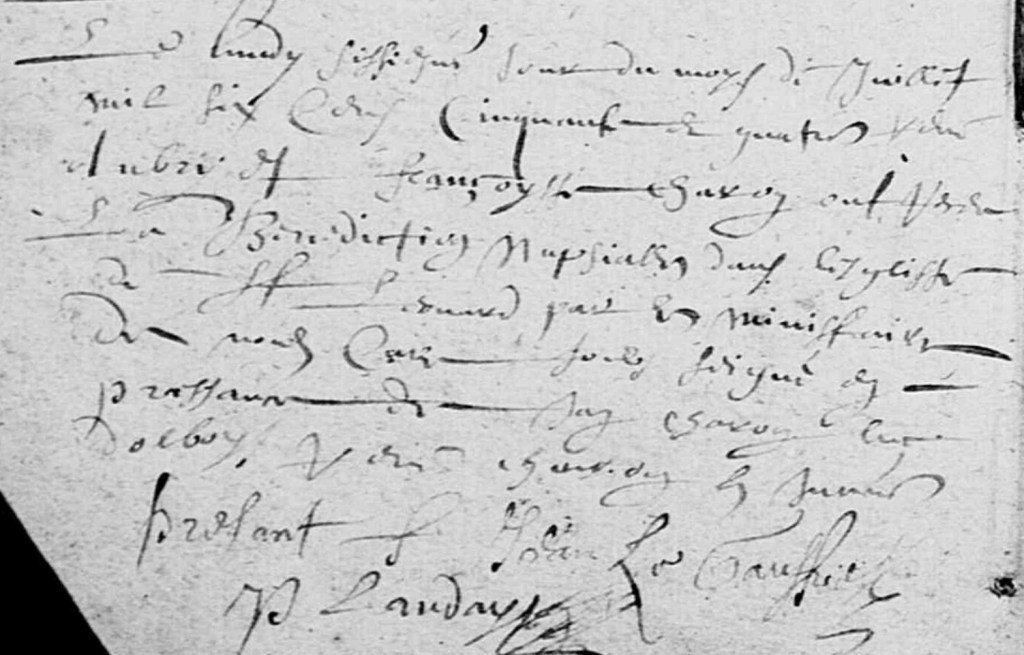 Le lundy sissiesme Jour du moys de Juillet
mil six Cens Cinquante & quattre René
Aubry et Françoyse Charon ont Receu
La Benediction Nuptialle dans l'esglisse
de St Leonard par le ministaire
de nous Curé soubz signé en
presance de Jan Charon
René Charon
presant Jean Le Gauffre
P Landays